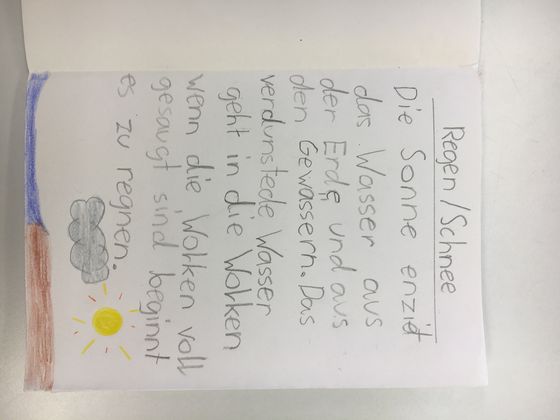 Regen/Schnee
Die Sonne enziet
das Wasser aus
der Erde und aus
den Gewässern. Das
verdunstede Wasser
geht in die Wolken
wenn die Wolken voll
gesaugt sind beginnt
es zu regnen.